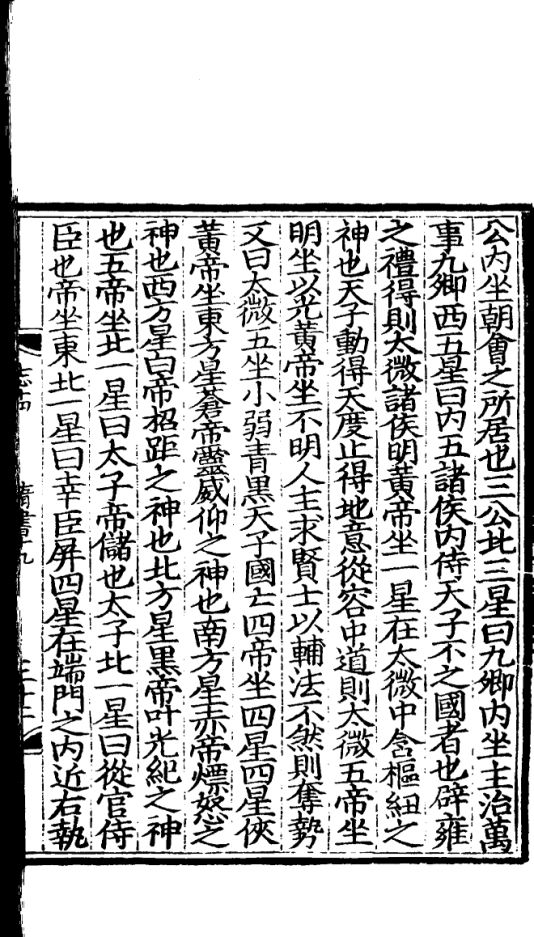 公内坐朝會之所居也三公北三星曰九卿内坐主治萬
事九卿西五星曰内五諸侯内侍天子不之國者也辟雍
之禮得則太微諸侯明黄帝坐一星在太微中含樞紐之
神也天子動得天度止得地意從容中道則太微五帝坐
明坐以光黄帝坐不明人主求賢士以輔法不然則奪勢
又曰太微五坐小弱青黑天子國亡四帝坐四星四星俠
黄帝坐東方星蒼帝靈威仰之神也南方星赤帝熛怒之
神也西方星白帝招距之神也北方星黑帝叶光紀之神
也五帝坐北一星曰太子帝儲也太子北一星曰從官侍
臣也帝坐東北一星曰幸臣屏四星在端門之内近右執